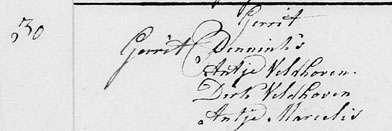 30
Gerrit
Gerrit Denvintis
Antje Veldhoven.
Dirk Veldhoven
Antje Marcelis